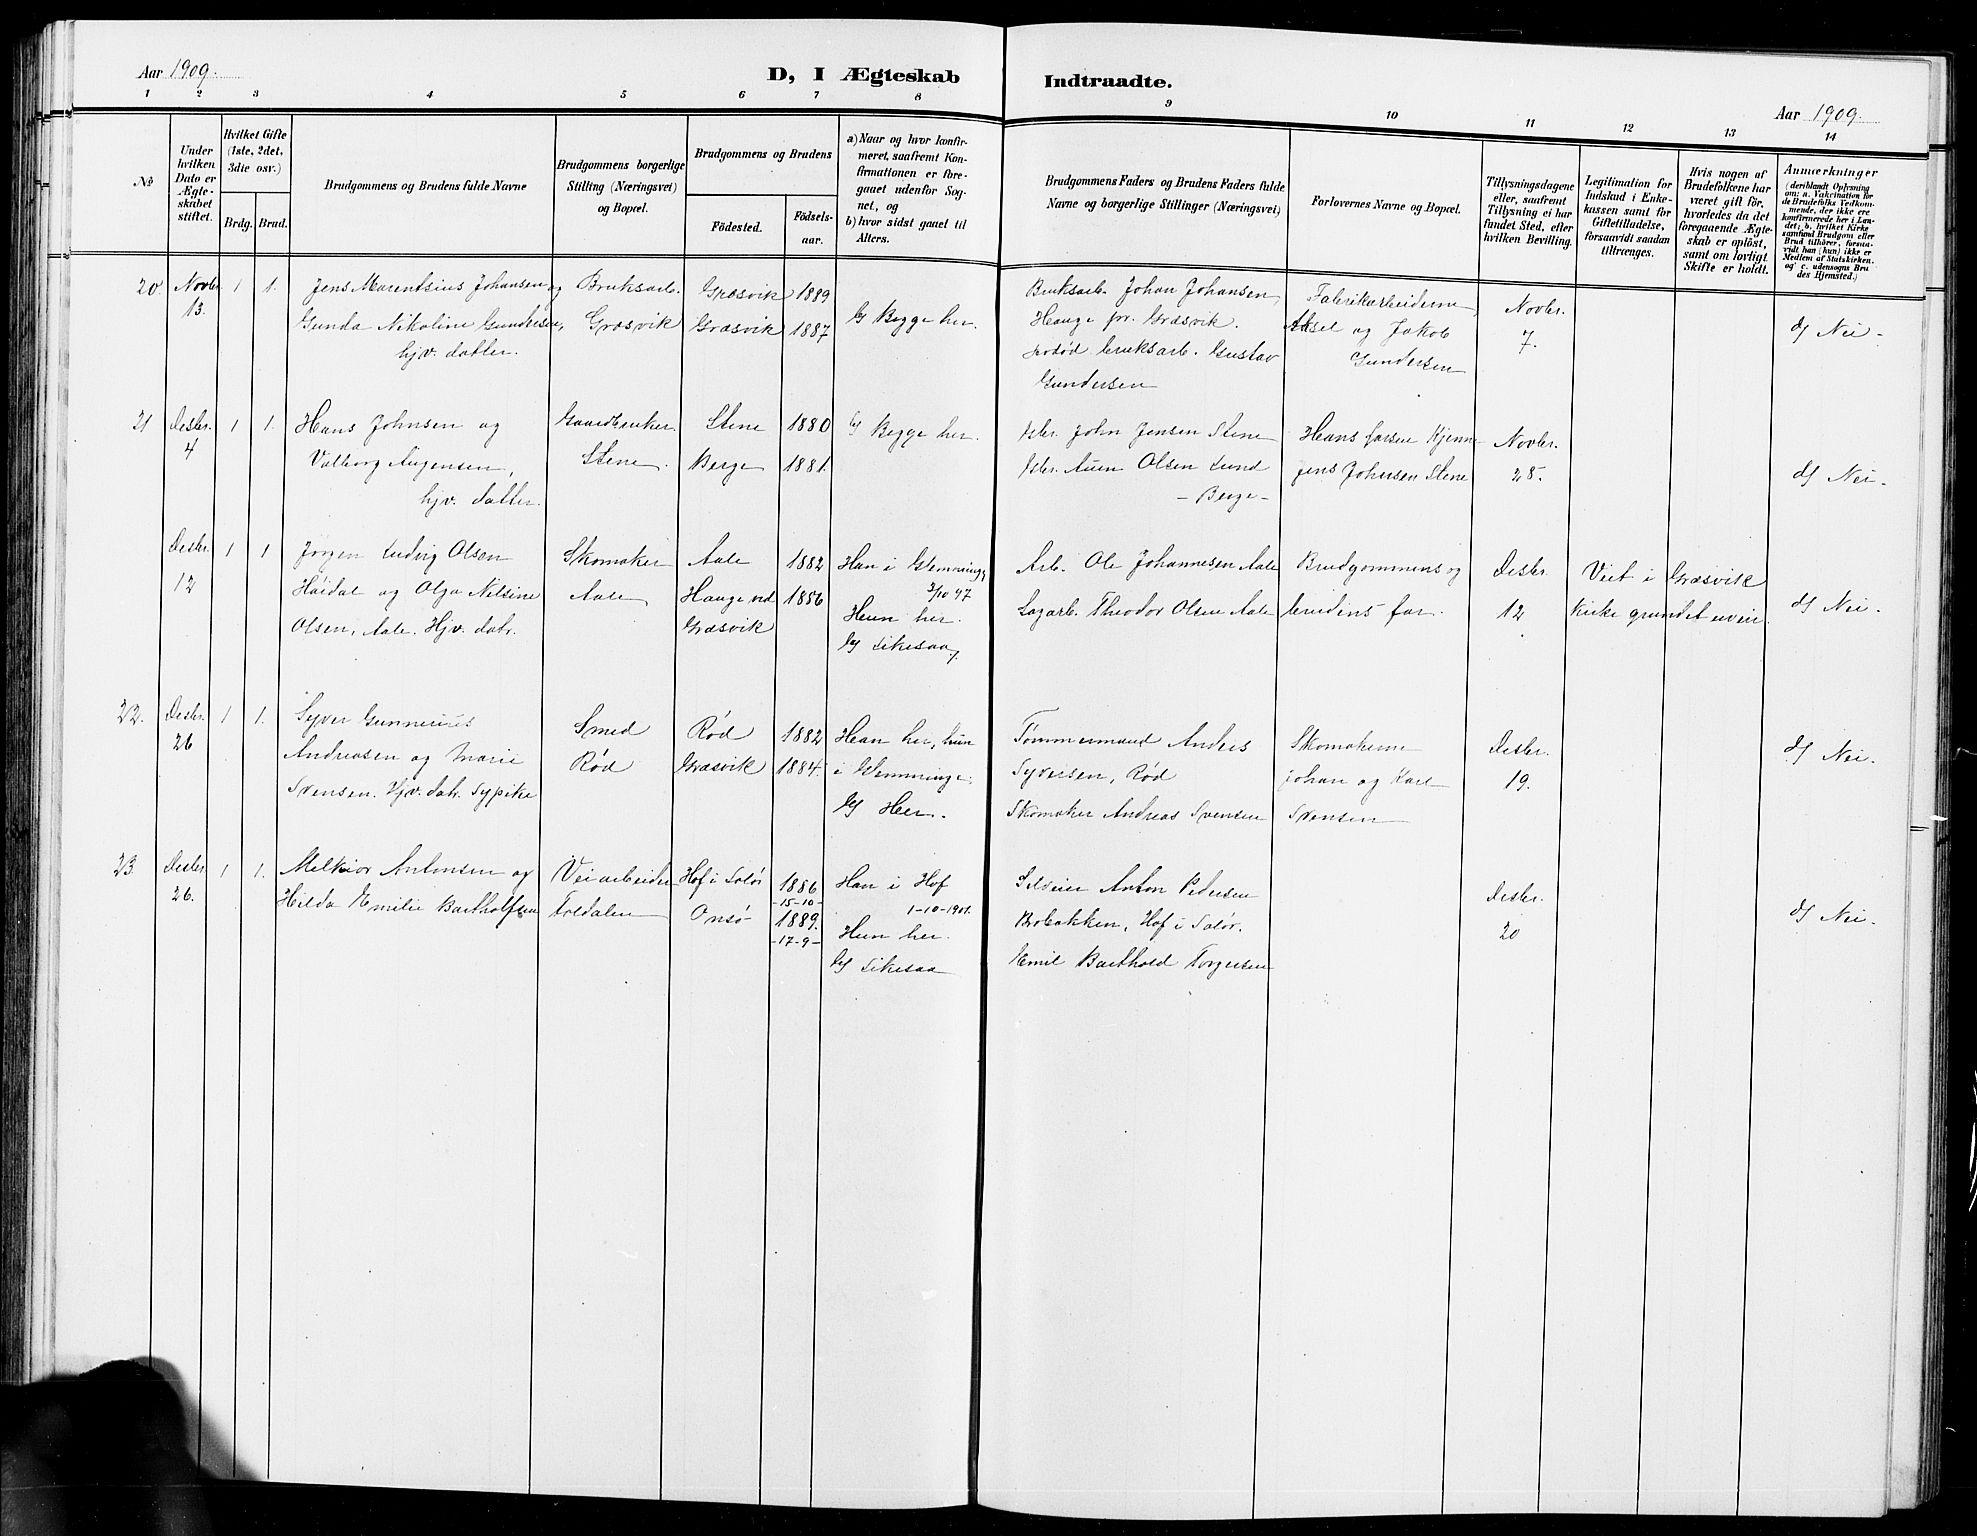 Aar 1909.
D, I Ægteskab Indtraadte.
Aar 1909.
1 2 3 4 5 6 7 8 9 10 11 12 13 14
No
Under hvilken Dato er Ægteskabet stiftet.
Hvilket Gifte (1ste, 2det, 3die osv.)
Brdg. Brud.
Brudgommens og Brudens fulde Navne
Brudgommens borgerlige Stilling (Næringsvei) og Bopæl.
Brudgommens og Brudens
Födested. Födselsaar.
a) Naar og hvor konfirmeret, saafremt Konfirmationen er foregaaet udenfor Sognet, og
b) hvor sidst gaaet til Alters.
Brudgommens Faders og Brudens Faders fulde Navne og borgerlige Stillinger (Næringsvei)
Forlovernes Navne og Bopæl.
Tillysningsdagene eller, saafremt Tillysning ei har fundet Sted, efter hvilken Bevilling.
Legitimation for Indskud i Enkekassen samt for Giftetilladelse, forsaavidt saadan tiltrænges.
Hvis nogen af Brudefolkene har været gift för, hvorledes da det foregaaende Ægteskab er oplöst, samt om lovligt Skifte er holdt.
Anmærkninger
(deriblandt Oplysning om: a. Vakcination for de Brudefolks Vedkommende, der ikke ere konfirmerede her i Landet; b. hvilket Kirkesamfund Brudgom eller Brud tilhörer, forsaavidt han (hun) ikke er Medlem af Statskirken, og c. udensogns Brudes Hjemsted.)
20. Novbr. 1 1. Jens Marentsius Johansen og Bruksarb. Græsvik 1889 Bruksarb. Johan Johansen, Fabrikarbeiderne Novbr.
13. Gunda Nikoline Gundersen, Græsvik Græsvik 1887 b) Begge her. Hauge pr. Græsvik. Aksel og Jakob 7. d) Nei.
hjv. datter. bruksarb. Gustav Gundersen
Gundersen
21 Desbr. 1 1. Hans Johnsen og Gaardbruker Stene 1880 b) Begge her. John Jensen Stene Hans Novbr.
4 Valborg Augensen, Stene. Berge 1881. Olsen Lund Jens Johnsen Stene 28. d) Nei.
hjv. datter. - Berge -
Desbr. 1 1 Jørgen Ludvig Olsen Skomaker Aale 1882 Han i Glemminge Arb. Ole Johannesen Aale Brudgommens og Desbr. Viet i Græsvik
12 Höidal og Olga Nilsine Aale Hauge ved 1886 3/10 97 Sagarb. Theodor Olsen Aale brudens far. 12 kirke grundet d) Nei.
Olsen, Aale. Hjv. datr. Græsvik Hun her.
b) Likesaa.
22. Desbr. 1 1. Syver Gunnerius Smed Rød 1882 Han her, hun Tømmermand Anders Skomakerne Desbr.
26 Andreasen og Marie Rød Græsvik 1884. i Glemminge. Syversen, Rød Johan og Karl 19. d) Nei.
Svensen. Hjv. datr. Sypike b) Her. Skomaker Andreas Svensen Svensen
23. Desbr. 1 1. Melkior Antonsen og Veiarbeider Hof i Solør 1886 Han i Hof Selveier Anton Pedersen Desbr.
26. Hilda Emilie Bartholfsen Onsø -15-10- 1-10-1901. Brobakken, Hof i Solør. 20 d) Nei.
1889. Hun her. Emil Barthold Torgersen
-17-9- b) Likesaa